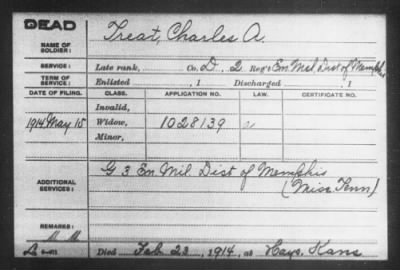 DEAD
NAME OF SOLDIER: Treat, Charles A.
SERVICE: Late rank, Co. D, 2 Reg't En. Mil Dist of Memphis
TERM OF SERVICE: Enlisted , 1 Discharged , 1
DATE OF FILING. CLASS. APPLICATION NO. LAW. CERTIFICATE NO.
Invalid,
1914 May 15 Widow, 1028139
Minor,
ADDITIONAL SERVICES: G 3 En. Mil. Dist of Memphis
(Miss. Tenn)
REMARKS:
Died Feb 23, 1914, at Hays, Kans